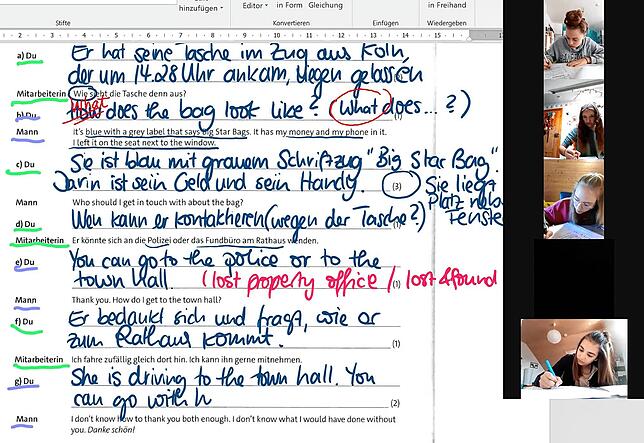 hinzufügen
Editor in Form Gleichung in Freihand
Stifte Konvertieren Einfügen Wiedergeben
2 1 1 2 3 4 5 6 7 8 9 10 11 12 13 14 15 17
a) Du Er hat seine Tasche im Zug aus Köln,
der um 14.28 Uhr ankam, liegen gelassen
Mitarbeiterin Wie sieht die Tasche denn aus?
b) Du How What does the bag look like? (What does...?)
(1)
Mann It's blue with a grey label that says Big Star Bags. It has my money and my phone in it.
I left it on the seat next to the window.
c) Du Sie ist blau mit grauem Schriftzug "Big Star Bag".
Darin ist sein Geld und sein Handy. (3) Sie liegt
Platz
Fenste
Mann Who should I get in touch with about the bag?
d) Du Wen kann er kontaktieren (wegen der Tasche?)
(1)
Mitarbeiterin Er könnte sich an die Polizei oder das Fundbüro am Rathaus wenden.
e) Du You can go to the police or to the
town hall. (lost property office / lost & found
(1)
Mann Thank you. How do I get to the town hall?
f) Du Er bedankt sich und fragt, wie er
zum Rathaus kommt.
(1)
Mitarbeiterin Ich fahre zufällig gleich dort hin. Ich kann ihn gerne mitnehmen.
g) Du She is driving to the town hall. You
can go with h
(2)
Mann I don't know how to thank you both enough. I don't know what I would have done without
you. Danke schön!